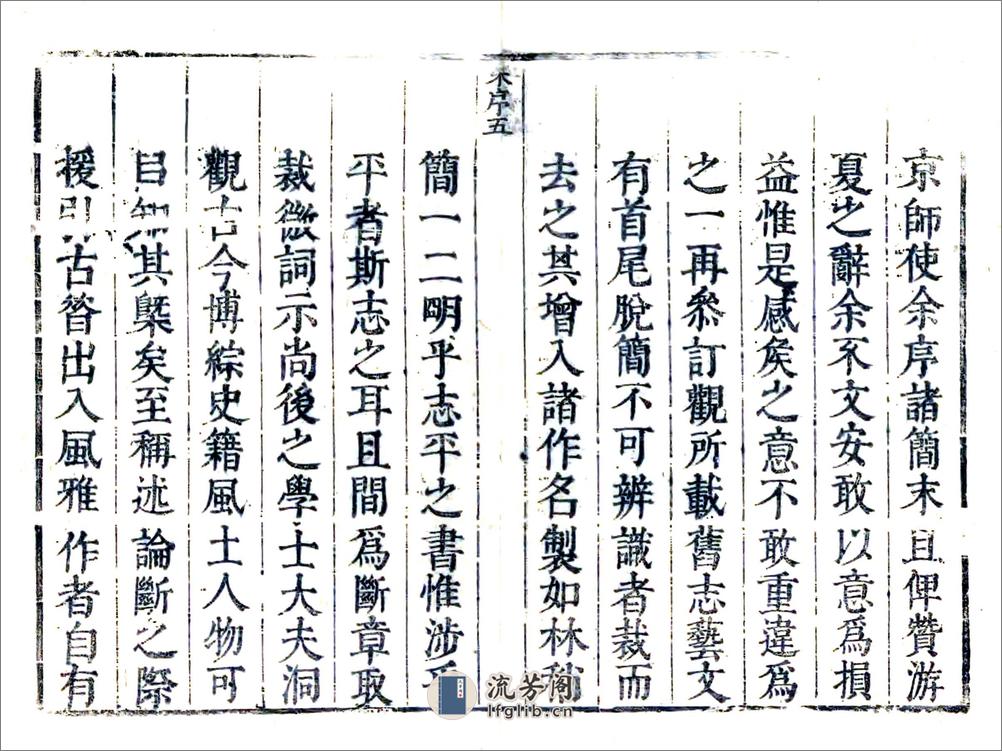 京師使余序諸簡末且俾贊游
夏之辭余不文安敢以意爲損
益惟是感矦之意不敢重違爲
之一再叅訂觀所載舊志藝文
有首尾脫簡不可辨識者裁而
去之其增入諸作名製如林稍
末序五
簡一二明乎志平之書惟涉乎
平者斯志之耳且間爲斷章取
裁微詞示尚後之學士大夫洞
觀古今博綜史籍風土人物可
目知其槩矣至稱述論斷之際
援引古昔出入風雅作者自有
流芳阁
lfglib.cn